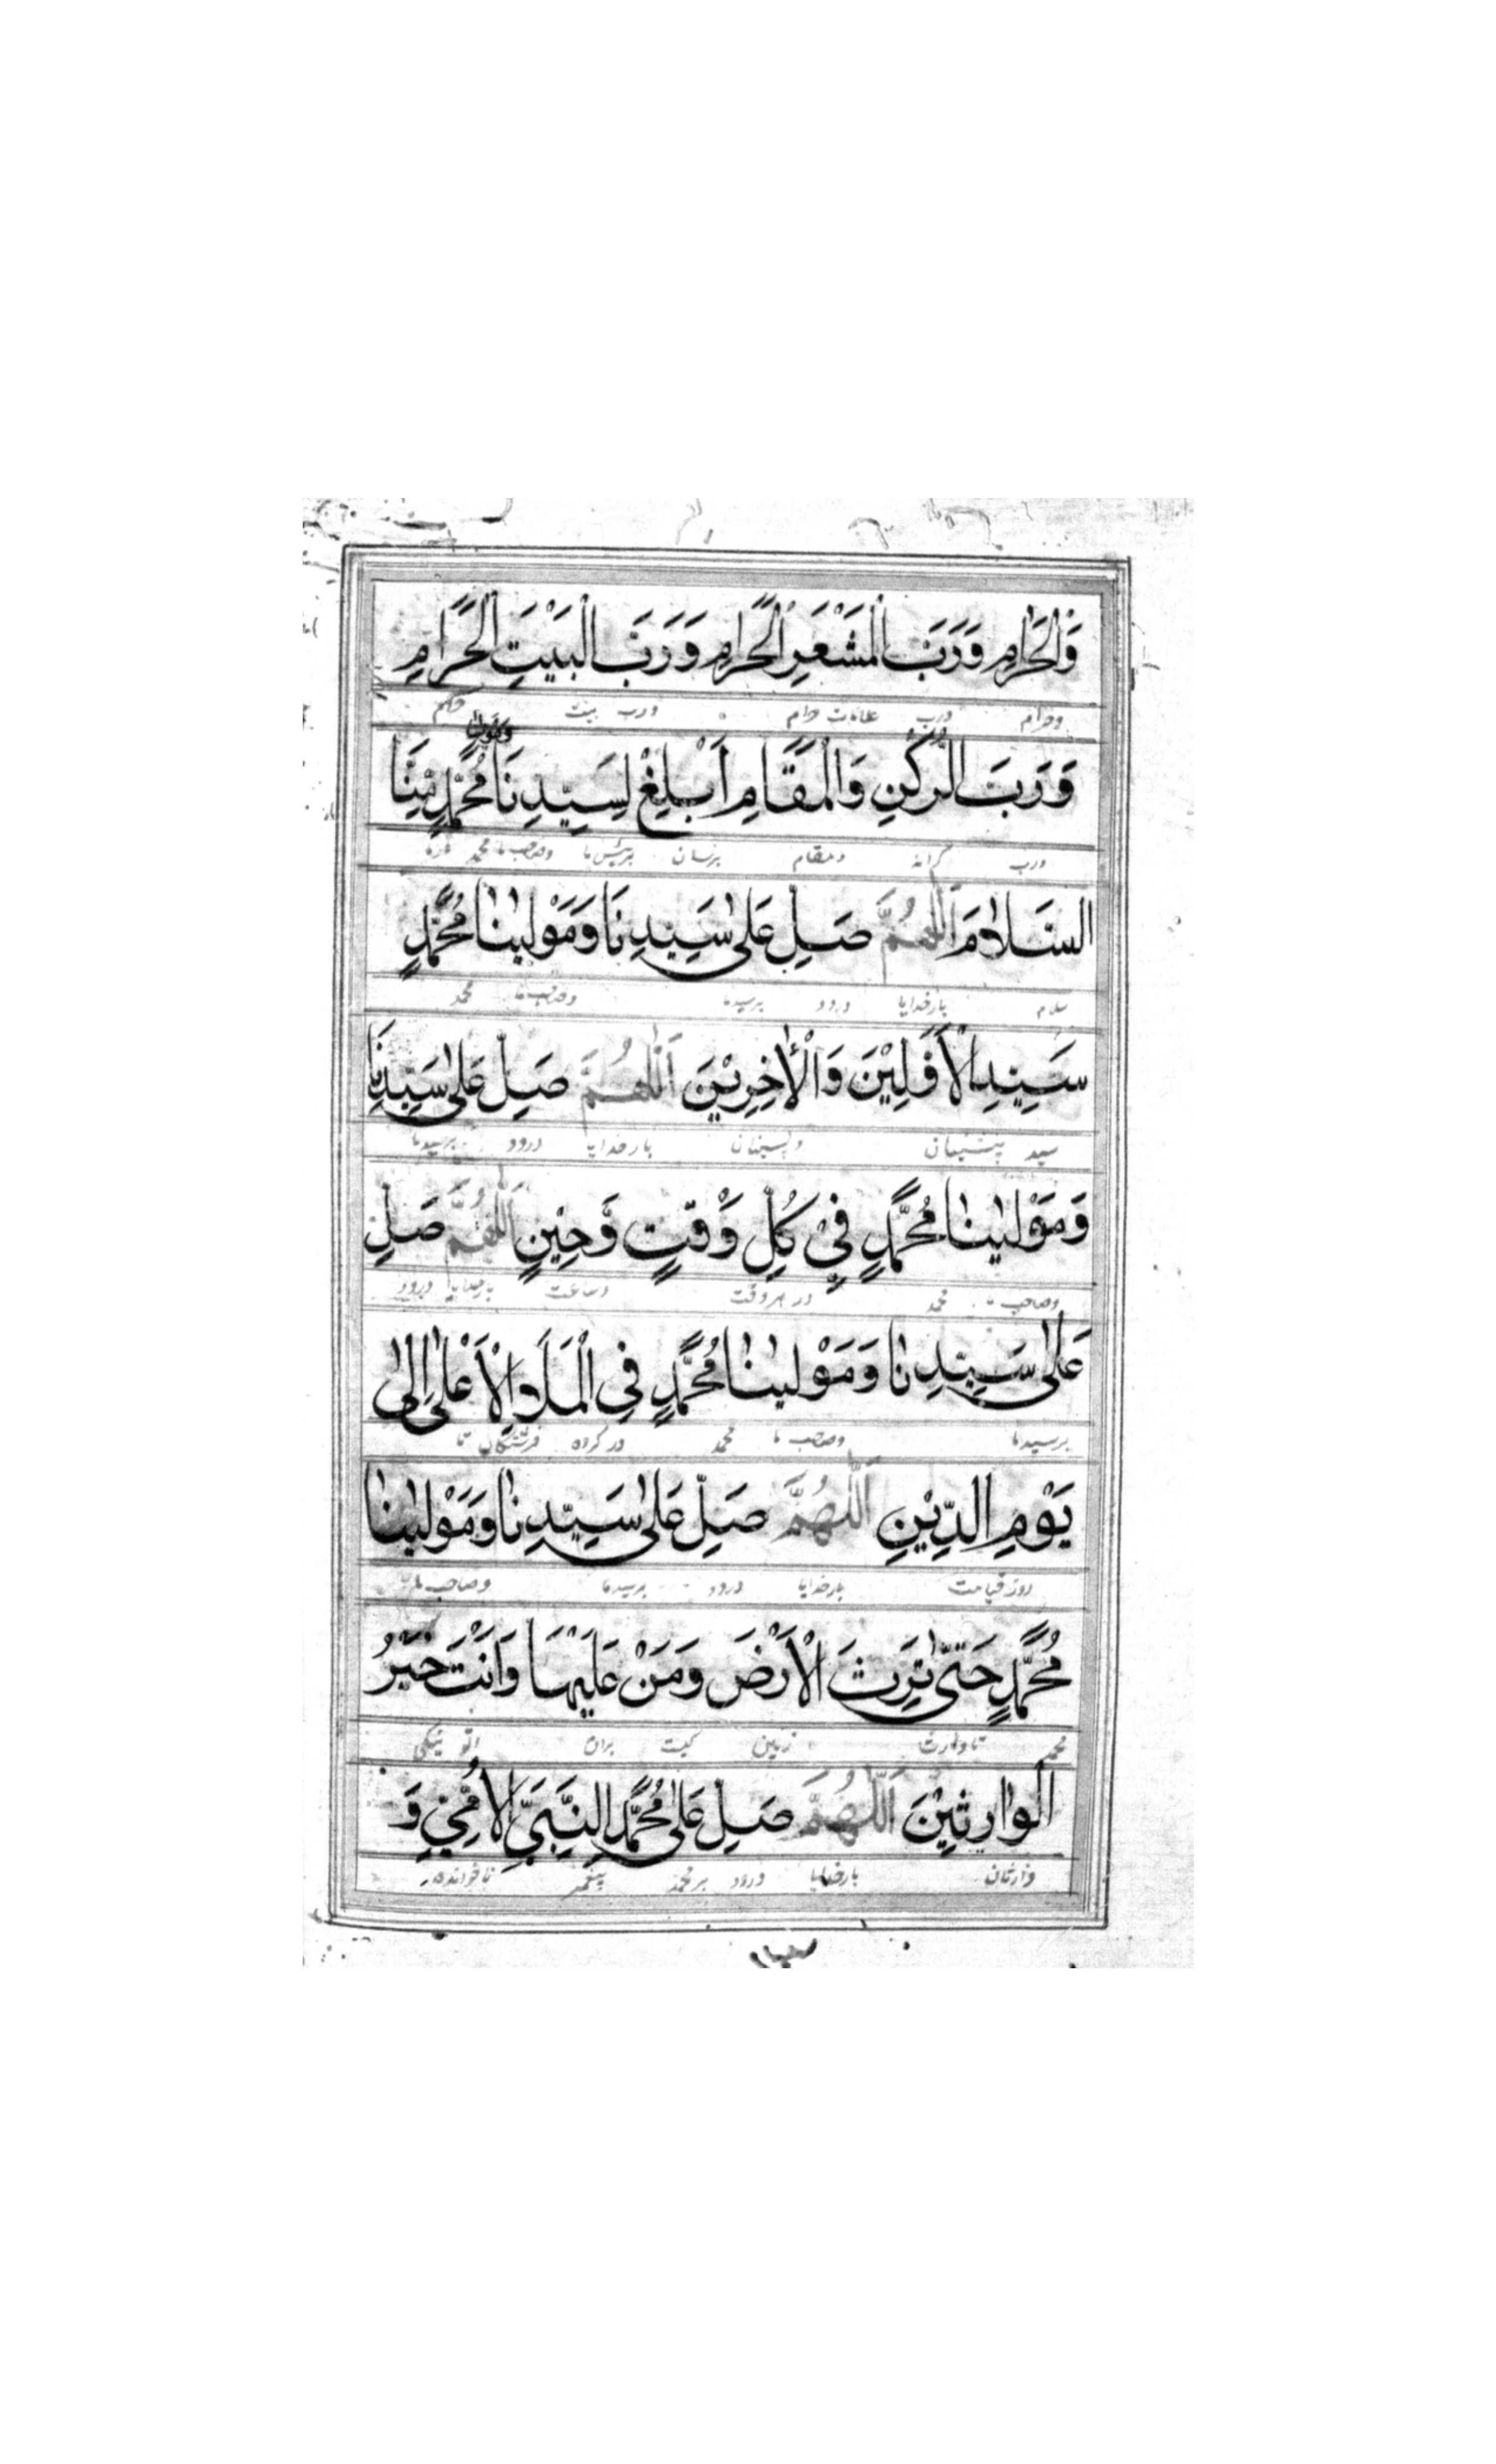 وَالْحَرَامِ وَرَبَّ الْمَشْعَرِ الْحَرَامِ وَرَبَّ الْبَيْتِ الْحَرَامِ
وحرام ورب علامات حرام ورب بيت
ومولينا
وَرَبَّ الرُّكْنِ وَالْمَقَامِ اَبْلِغْ لِسَيِّدِنَا مُحَمَّدٍ مِنَّا
ورب كرانه ومقام برسان وصاحب ما محمد
السَّلَامَ اَللّٰهُمَّ صَلِّ عَلٰى سَيِّدِنَا وَمَوْلٰينَا مُحَمَّدٍ
سلام بارخدايا درود برسيدما وصاحب ما محمد
سَيِّدِ الْاَوَّلِيْنَ وَالْاٰخِرِيْنَ اَللّٰهُمَّ صَلِّ عَلٰى سَيِّدِنَا
سيد پيشينان وپسينان بارخدايا درود برسيدما
وَمَوْلٰينَا مُحَمَّدٍ فِيْ كُلِّ وَقْتٍ وَّحِيْنٍ اَللّٰهُمَّ صَلِّ
وصاحب ما محمد در هر وقت وساعت بارخدايا درود
عَلٰى سَيِّدِنَا وَمَوْلٰينَا مُحَمَّدٍ فِي الْمَلَاِ الْاَعْلٰى اِلٰى
برسيدما وصاحب ما محمد در كروه فرشتكان تا
يَوْمِ الدِّيْنِ اَللّٰهُمَّ صَلِّ عَلٰى سَيِّدِنَا وَمَوْلٰينَا
روز قيامت بارخدايا درود برسيدما وصاحب ما
مُحَمَّدٍ حَتّٰى تَرِثَ الْاَرْضَ وَمَنْ عَلَيْهَا وَاَنْتَ خَيْرُ
محمد تا وارث زمين كيست بران
الْوَارِثِيْنَ اَللّٰهُمَّ صَلِّ عَلٰى مُحَمَّدِ النَّبِيِّ الْاُمِّيِّ وَ
وارثان بارخدايا درود برمحمد پيغمبر ناخوانده